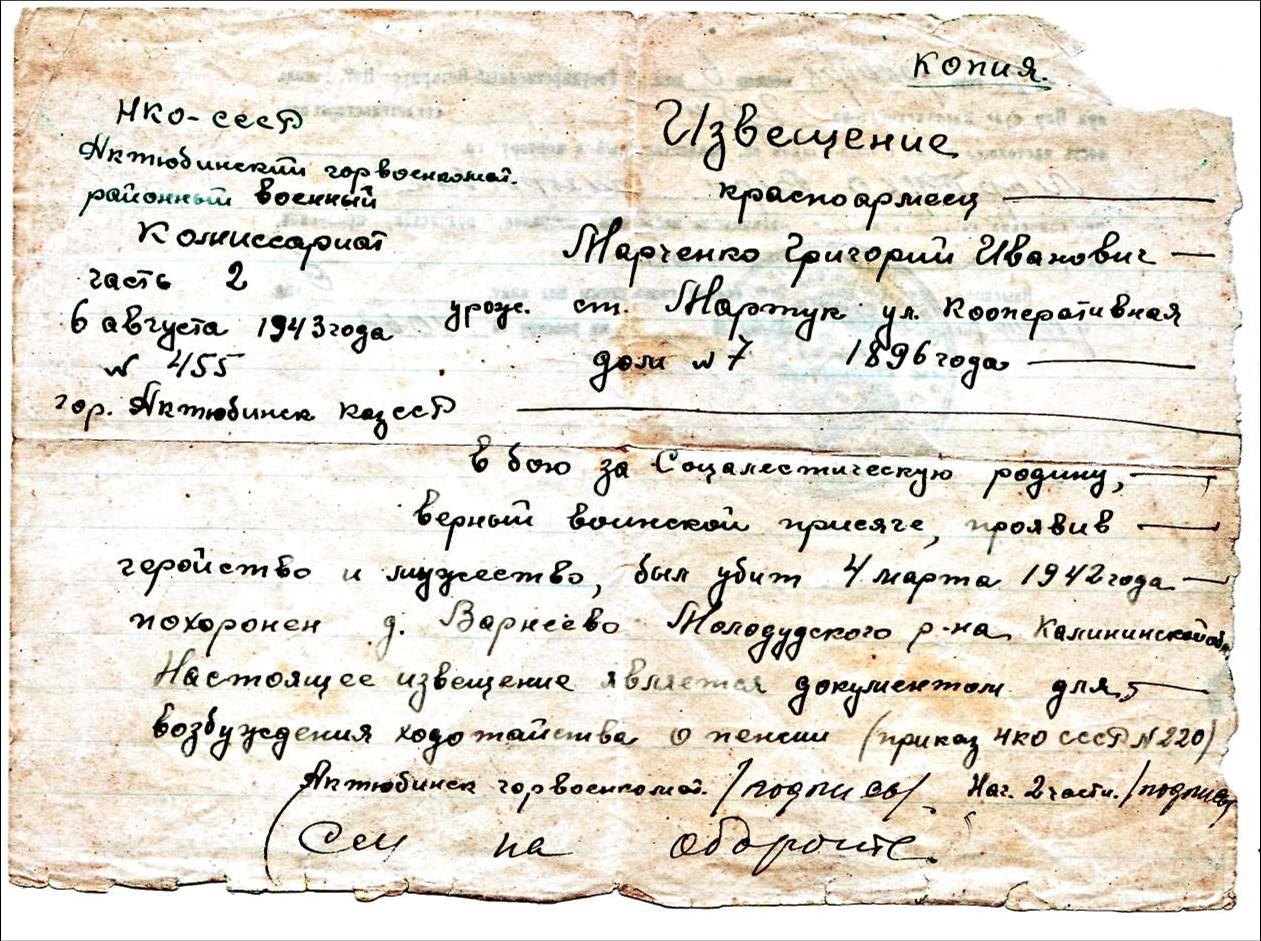 Копия.
НКО-СССР
Актюбинский горвоенкомат.
районный военный
Комиссариат
часть 2
6 августа 1943 года
№ 455
гор. Актюбинск КазССР
Извещение
красноармеец
Марченко Григорий Иванович
урож. ст. Мартук ул. Кооперативная
дом №7 1896 года
в бою за Социалестическую родину,
верный воинской присяге, проявив
геройство и мужество, был убит 4 марта 1942 года
похоронен д. Варнеево Молодудского р-на Калининской обл
Настоящее извещение является документом для
возбуждения ходотайства о пенсии (приказ НКО СССР №220)
Актюбинск горвоенкомат. /подписы/ Нач. 2 части. /подпись
См на обороте.